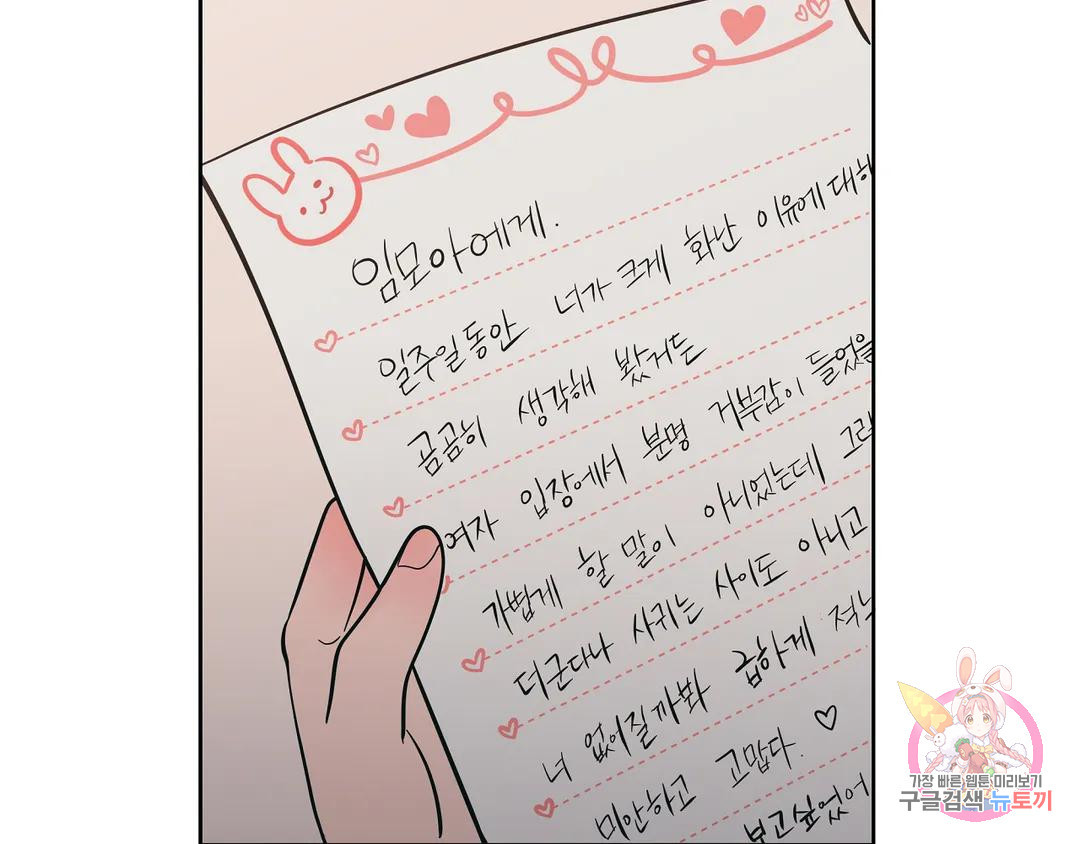 임모아에게.
일주일동안 너가 크게 화난 이유에 대해
곰곰히 생각해 봤거든
여자 입장에서 분명 거부감이 들었을
가볍게 할 말이 아니었는데 그런
더군다나 사귀는 사이도 아니고
너 없어질까봐 급하게 적는
미안하고 고맙다. ♡
보고싶었어
가장 빠른 웹툰 미리보기
구글검색 뉴토끼